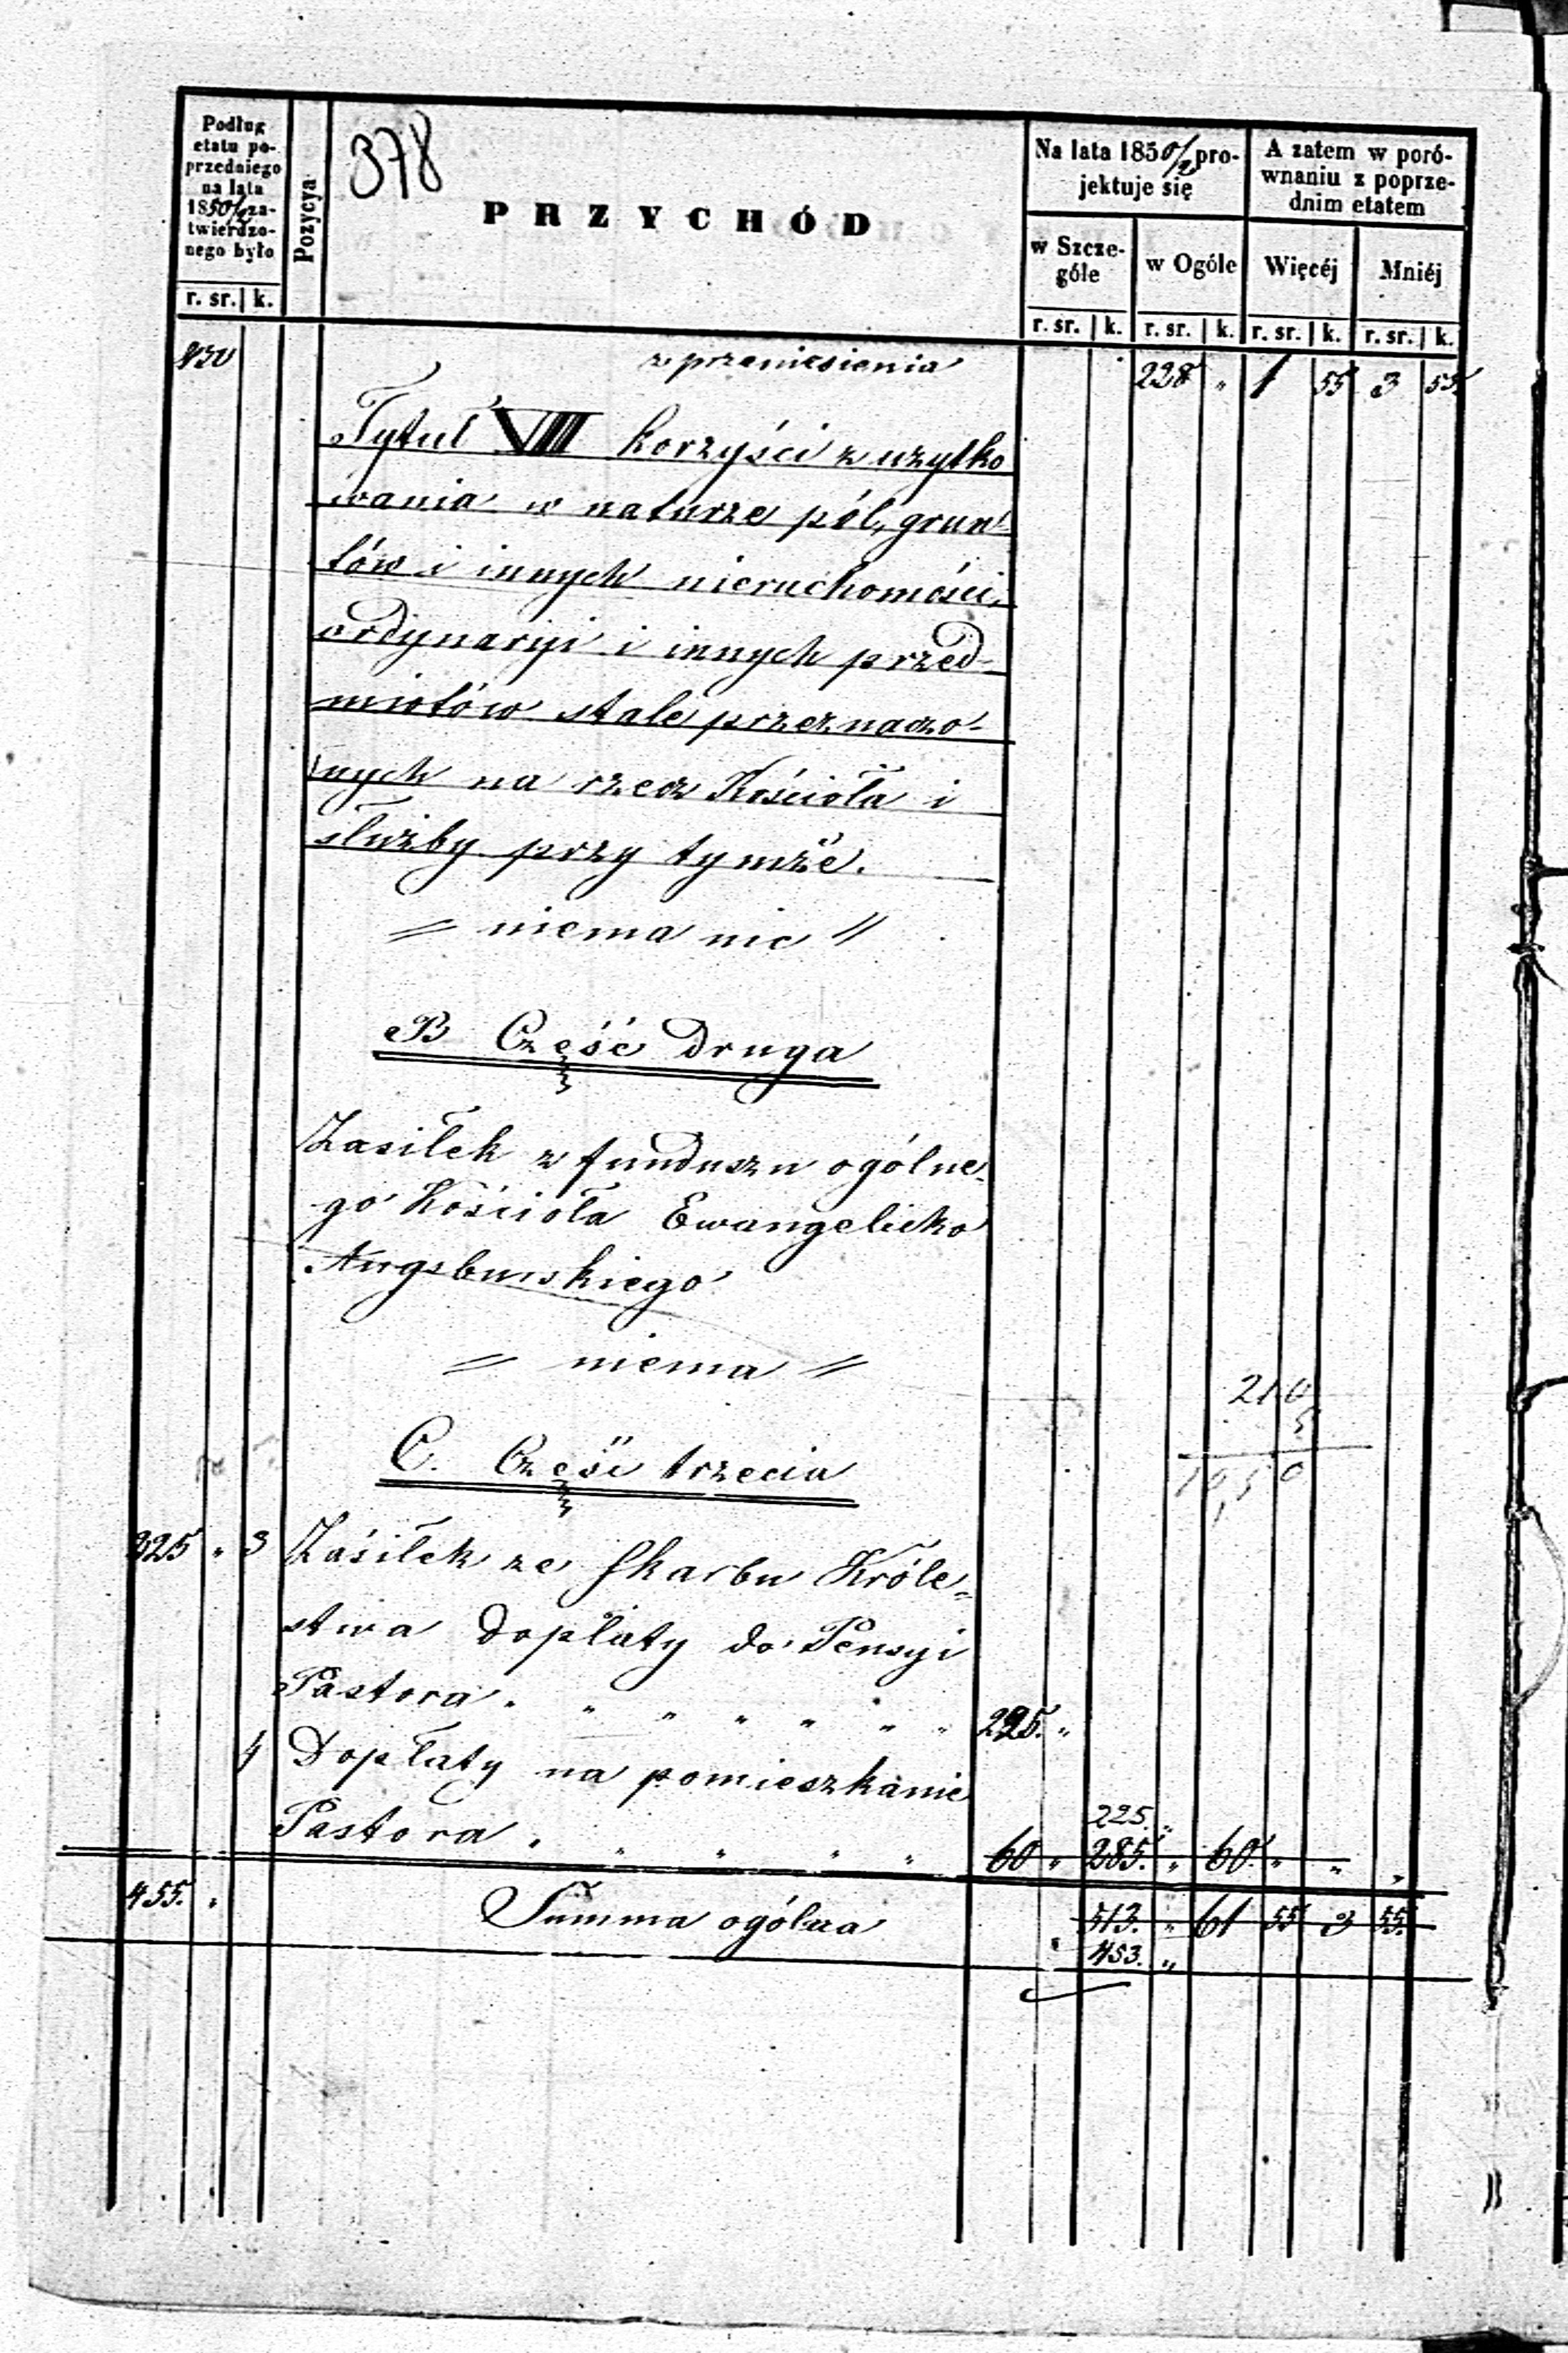 378
Podług
etatu po-
przedniego
na lata
1850/2 za-
twierdzo-
nego było
r. sr. k.
Pozycya
PRZYCHÓD
Na lata 1850/2 pro-
jektuje się
w Szcze-
góle
w Ogóle
r. sr. k. r. sr. k.
A zatem w poró-
wnaniu z poprze-
dnim etatem
Więcéj Mniéj
r. sr. k. r. sr. k.
z przeniesienia 228 „ 1 55 3 55
Tytuł VIII korzyści z uzytko
wania w naturze pól, grun
tów i innych nieruchomości,
ordynaryi i innych przed-
miotów stale przeznaczo-
nych na rzecz Kościoła i
służby przy tymże.
= niema nic =
B Część Druga
Zasiłek z funduszu ogólne-
go Kościoła Ewangelicko
Augsburskiego
= niema =
210
5
10,50
C. Część trzecia
225 „ 3 Zasiłek ze Skarbu Króle-
stwa Dopłaty do Pensyi
Pastora „ „ „ „ „ „ „ 225. „
4 Dopłaty na pomieszkanie
225. „
Pastora „ „ „ „ „ 60 „ 285. „ 60. „ „ „
455. „ Summa ogólna 513. „ 61 55 3 55.
453. „